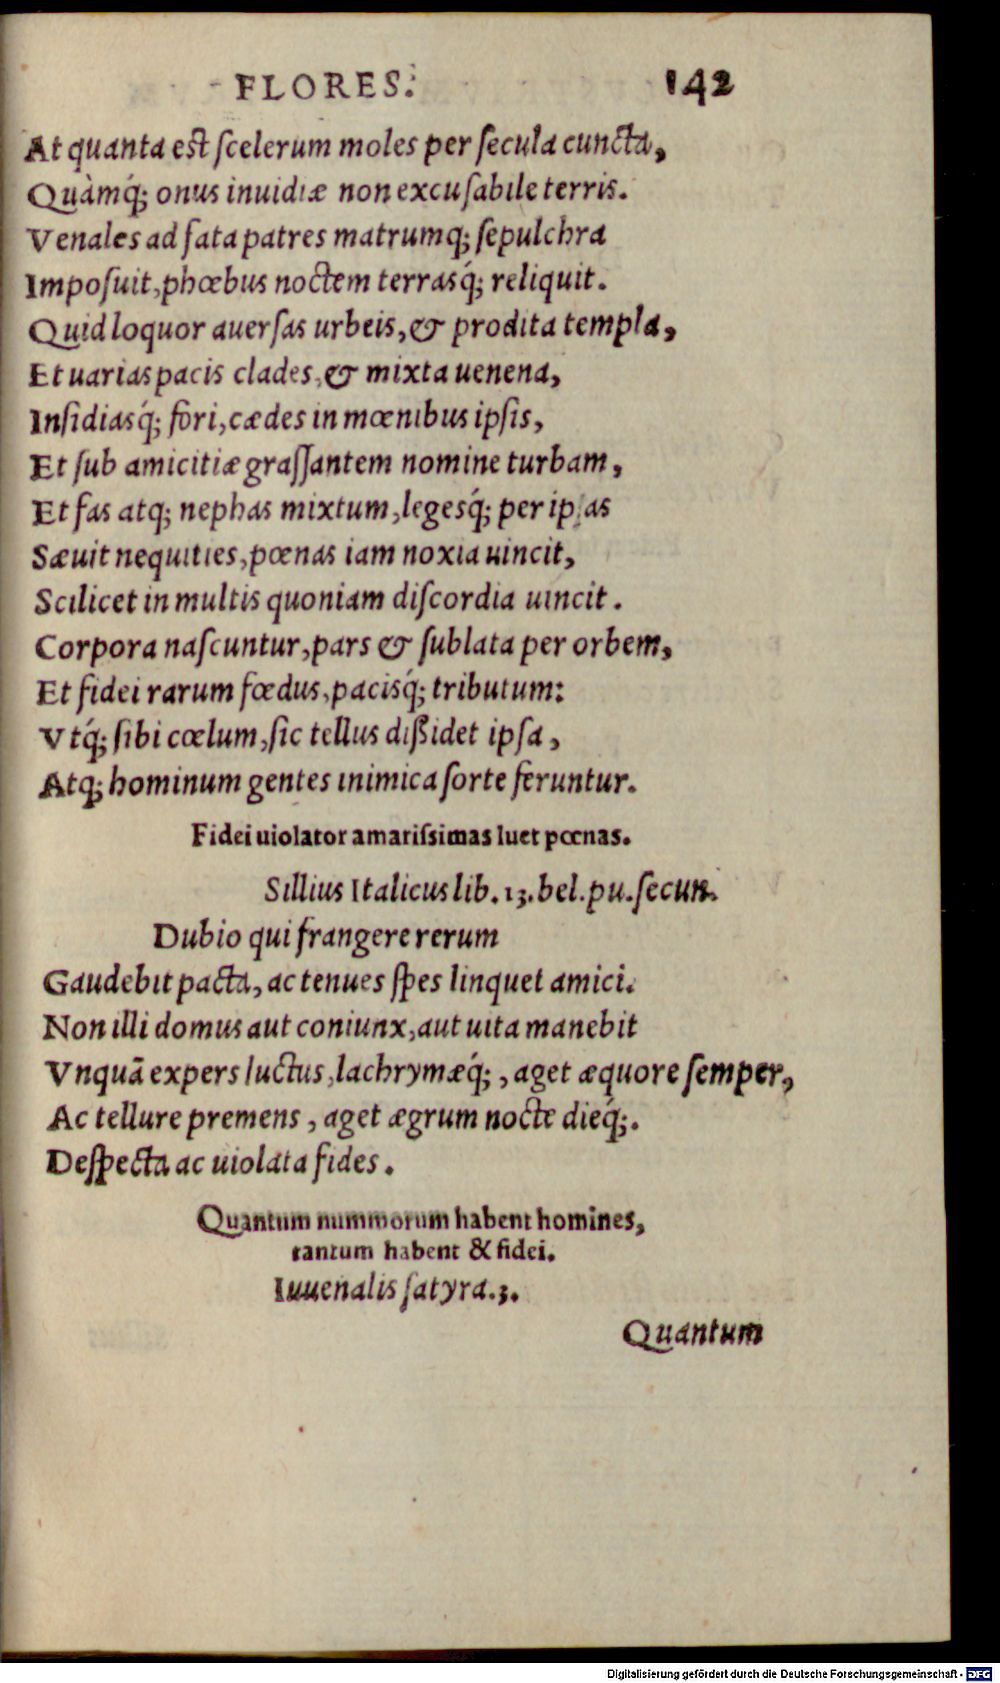 FLORES. 142
At quanta est ſcelerum moles per ſecula cuncta,
Quàmq́; onus inuidiæ non excuſabile terris.
Venales ad fata patres matrumq; ſepulchra
Impoſuit, phœbus noctem terrasq́; reliquit.
Quid loquor auerſas urbeis, & prodita templa,
Et uarias pacis clades, & mixta uenena,
Inſidiasq́; fori, cædes in mœnibus ipſis,
Et ſub amicitiæ graſſantem nomine turbam,
Et fas atq; nephas mixtum, legesq́; per ipſas
Sæuit nequities, pœnas iam noxia uincit,
Scilicet in multis quoniam diſcordia uincit.
Corpora naſcuntur, pars & ſublata per orbem,
Et fidei rarum fœdus, pacisq́; tributum:
Vtq́; ſibi cœlum, ſic tellus diſsidet ipſa,
Atq; hominum gentes inimica ſorte feruntur.
Fidei uiolator amariſsimas luet pœnas.
Sillius Italicus lib. 13. bel. pu. ſecun.
Dubio qui frangere rerum
Gaudebit pacta, ac tenues ſpes linquet amici.
Non illi domus aut coniunx, aut uita manebit
Vnquā expers luctus, lachrymæq́;, aget æquore ſemper,
Ac tellure premens, aget ægrum nocte dieq́;.
Deſpecta ac uiolata fides.
Quantum nummorum habent homines,
tantum habent & fidei.
Iuuenalis ſatyra. 3.
Quantum
Digitalisierung gefördert durch die Deutsche Forschungsgemeinschaft - DFG